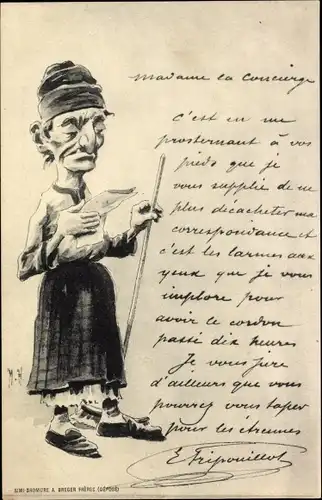 Madame la Concierge
c'est en me
prosternant à vos
pieds que je
vous supplie de ne
plus décacheter ma
correspondance et
c'est les larmes aux
yeux que je vous
implore pour
avoir le cordon
passé dix heures
Je vous jure
d'ailleurs que vous
pourrez vous taper
pour les étrennes
E. Fripouillot
SIMI-GRAVURE A. BREGER FRÈRES (DÉPOSÉ)